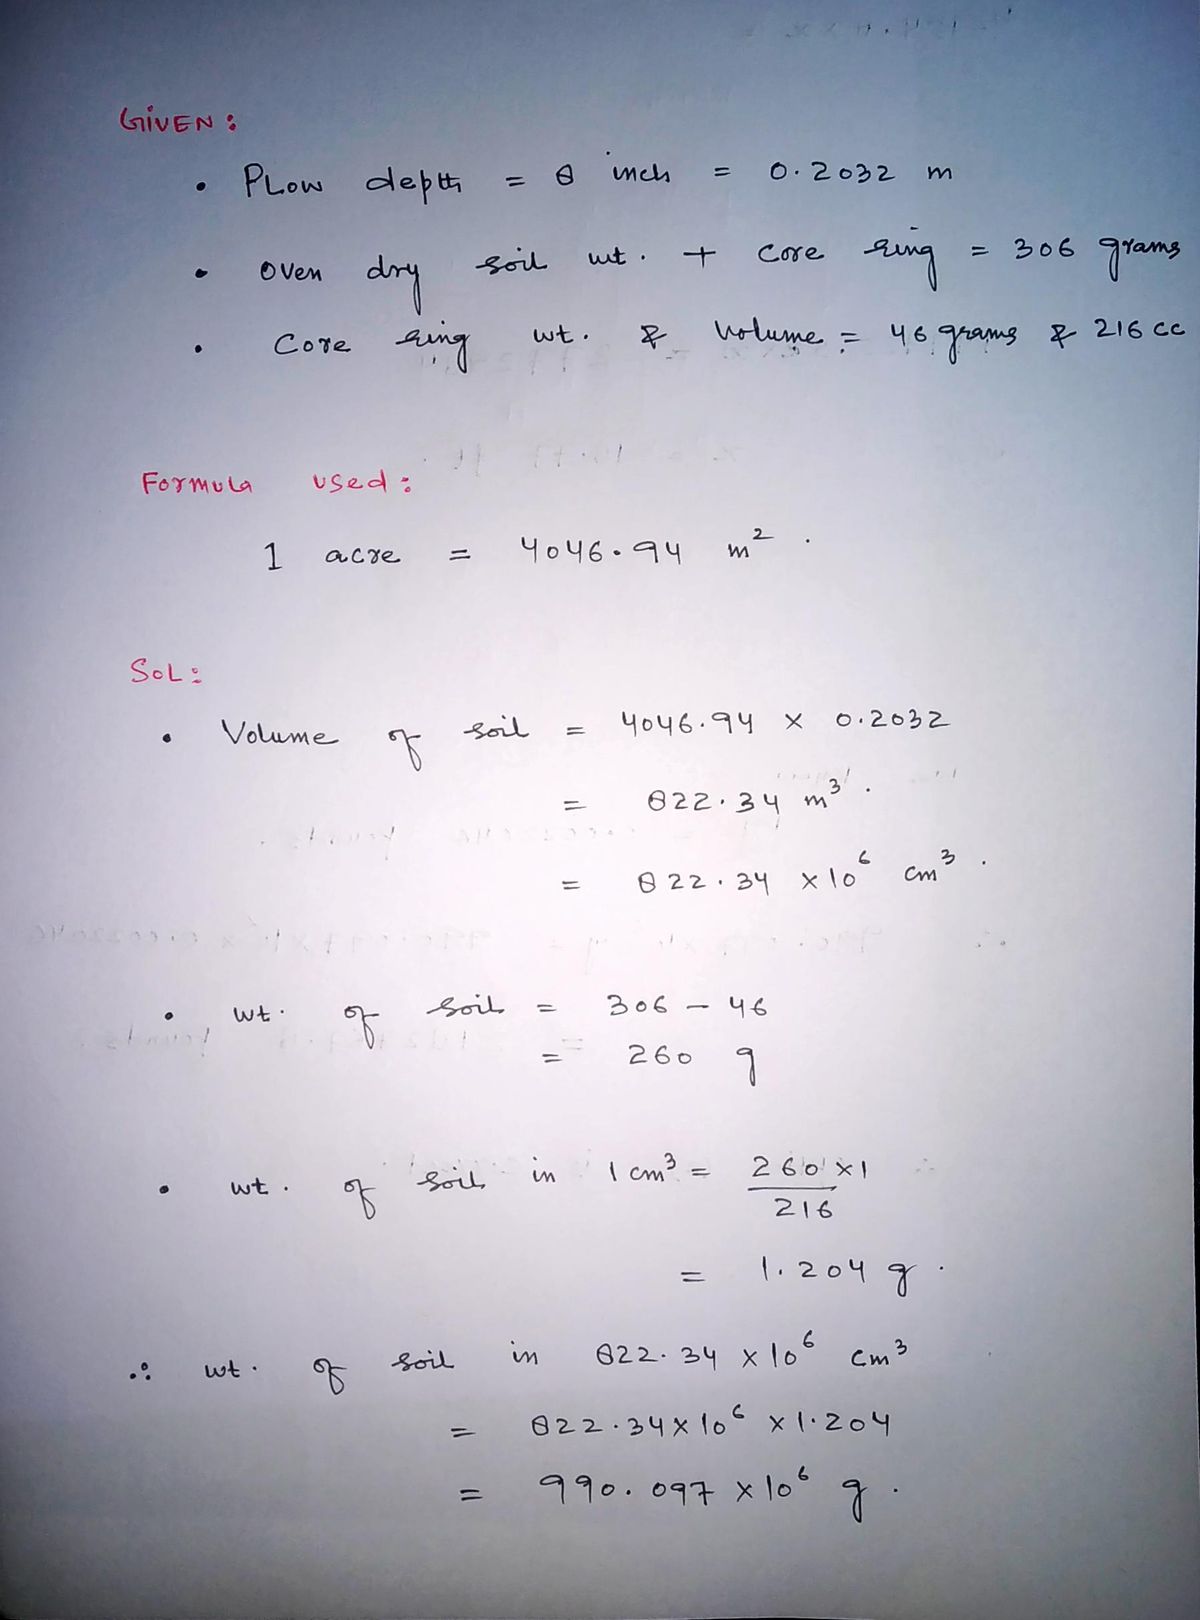 GIVEN :
• PLOW depth = 8 inch = 0.2032 m
• Oven dry soil wt. + Core ring = 306 grams
• Core ring wt. & Volume = 46 grams & 216 cc
Formula used :
1 acre = 4046.94 m².
SOL :
• Volume of soil = 4046.94 × 0.2032
= 822.34 m³.
= 822.34 × 10⁶ cm³.
• wt. of soil = 306 - 46
= 260 g
• wt. of soil in 1 cm³ = 260 × 1 / 216
= 1.204 g.
∴ wt. of soil in 822.34 × 10⁶ cm³
= 822.34 × 10⁶ × 1.204
= 990.097 × 10⁶ g.